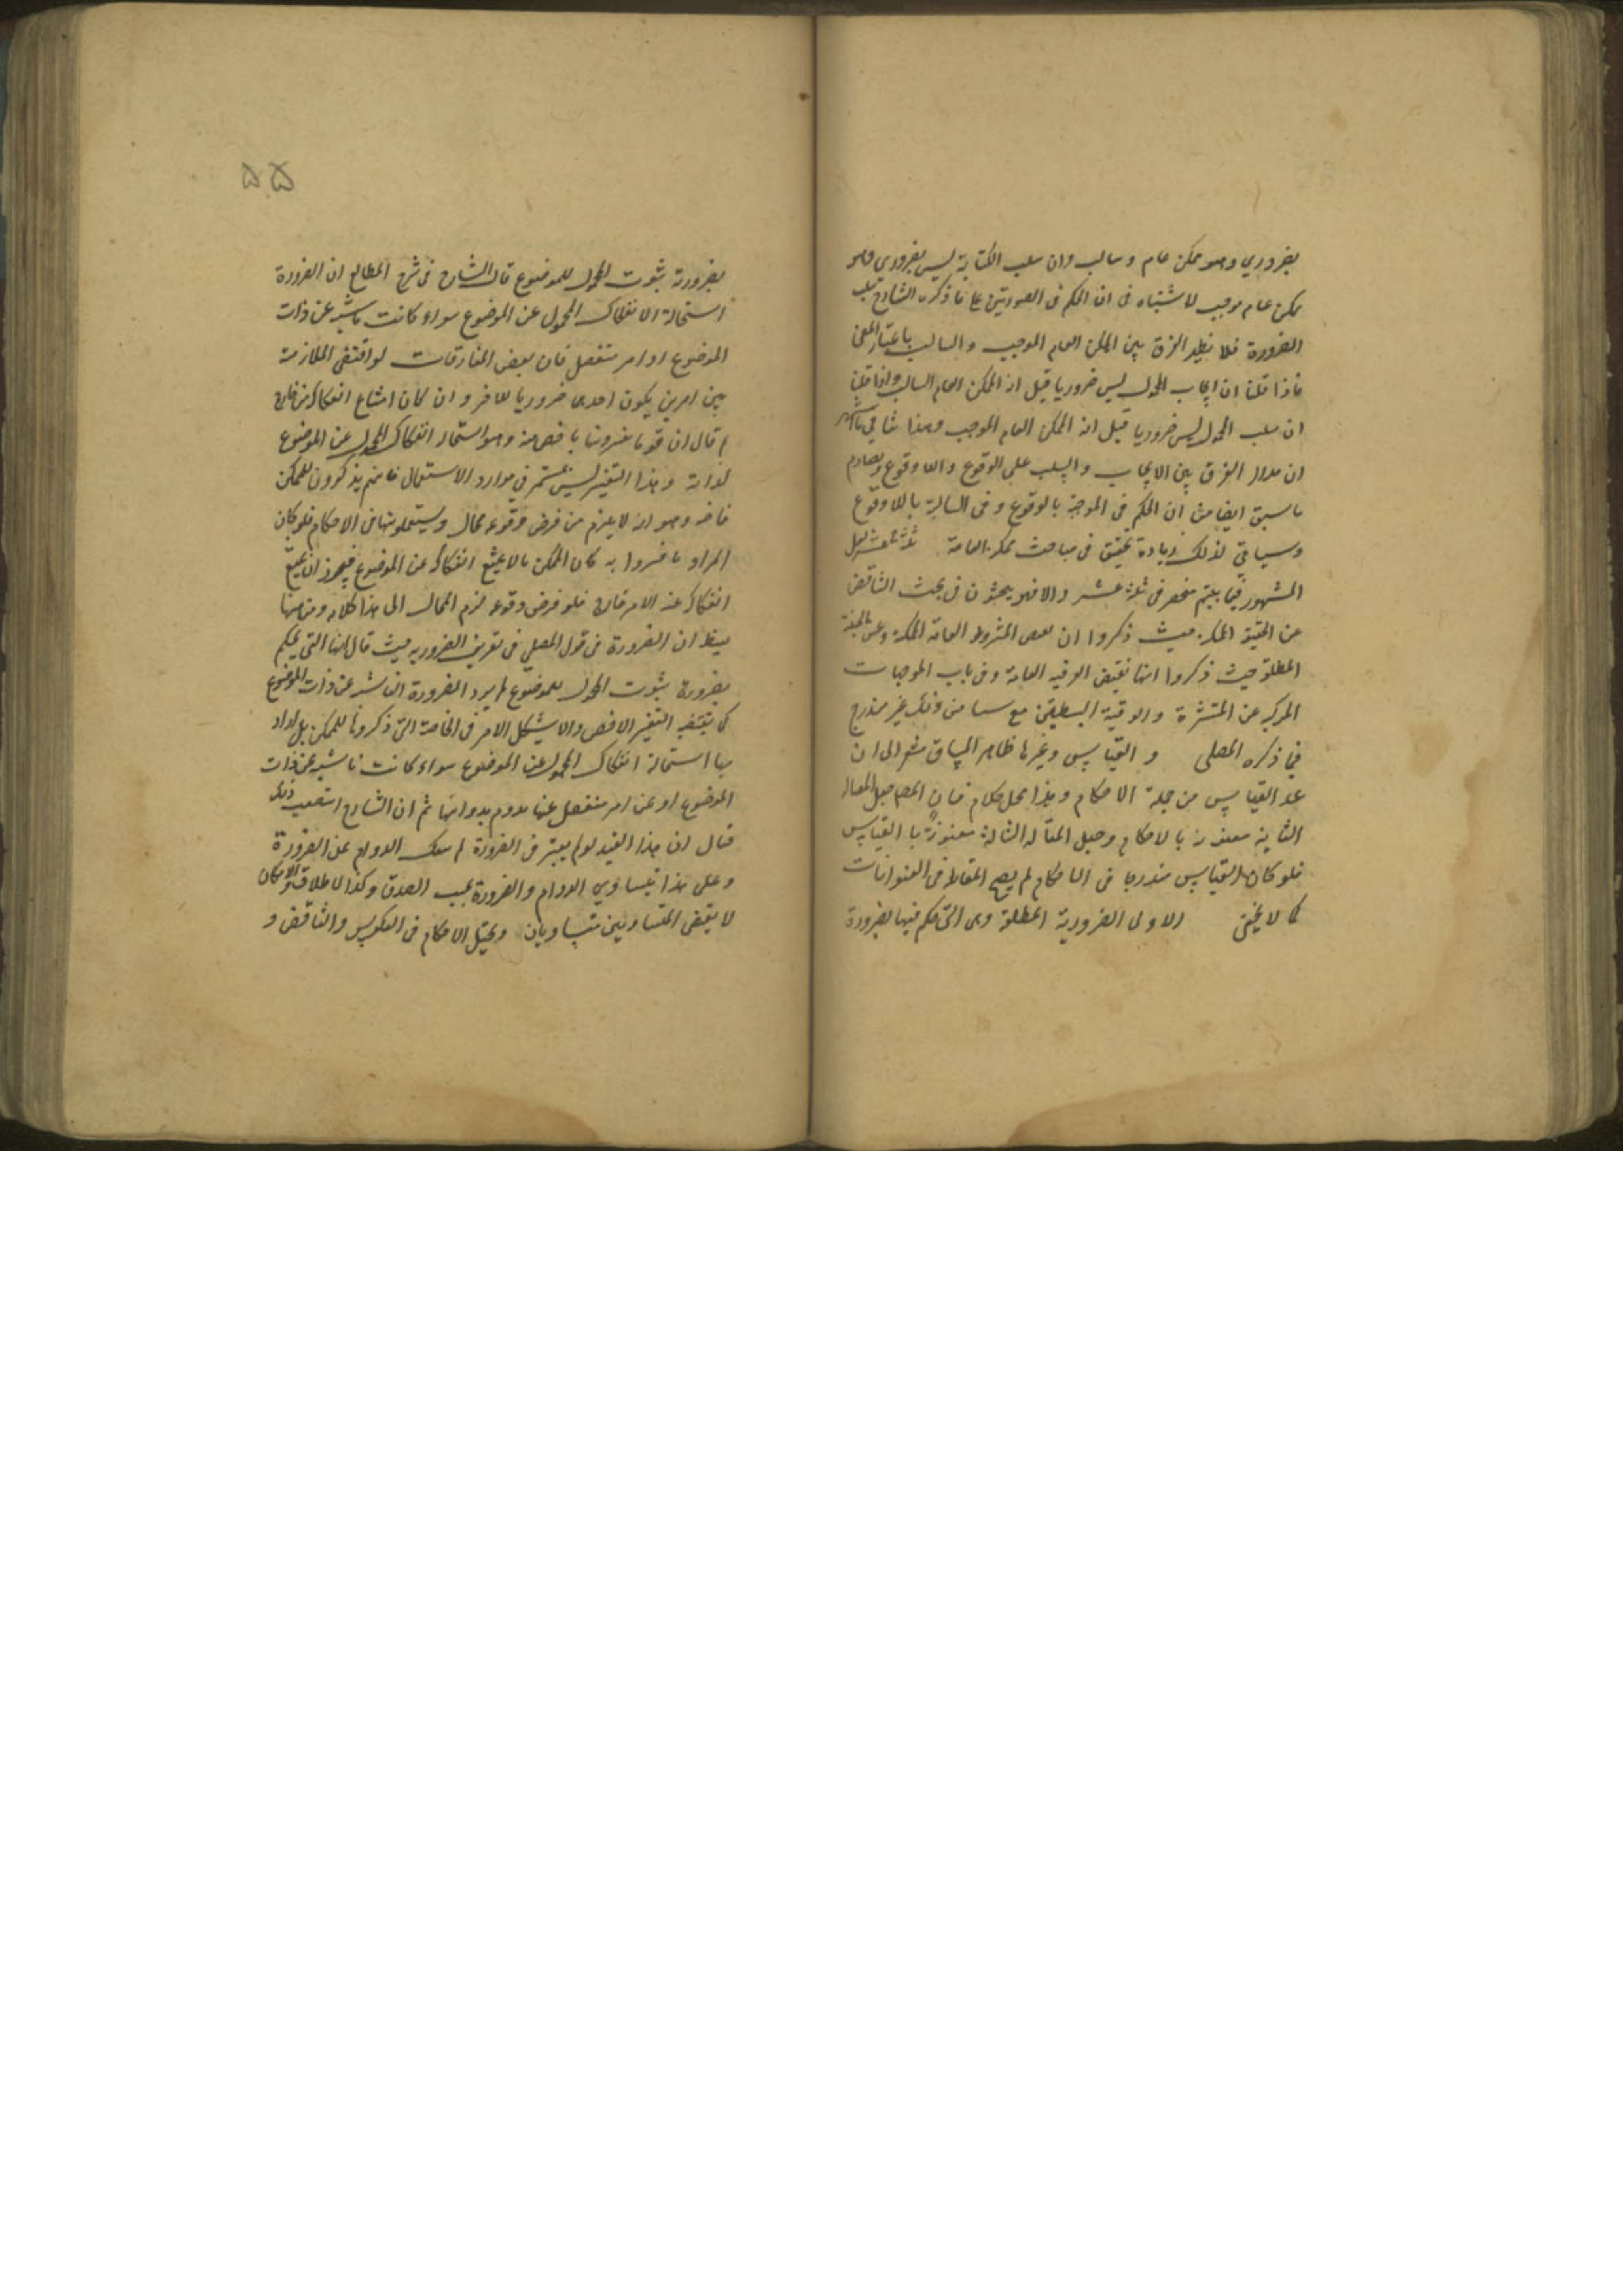 بضروري وهو ممكن عام وسالب وان سلب الكتابة ليس بضروري وهو
ممكن عام موجب لا شتباه فى ان الحكم فى الصورتين على ما ذكره الشارح سلب
الضرورة فلا يظهر الفرق بين الممكن العام الموجب والسالب باعتبار المعنى
فاذا قلنا ان ايجاب المحمول ليس ضروريا قيل انه الممكن العام السالب واذا قلنا
ان سلب المحمول ليس ضروريا قيل انه الممكن العام الموجب وهذا ينافي
ان مدار الفرق بين الايجاب والسلب على الوقوع واللاوقوع ويصادم
ما سبق ايضا من ان الحكم فى الموجبة بالوقوع وفى السالبة باللاوقوع
وسياتي لذلك زيادة تحقيق فى مباحث ممكنه العامة ثلثة عشر
المشهور فيما بينهم منحصر فى ثلثة عشر والا فهو يبحثون فى بحث التناقض
عن الحينية الممكنة حيث ذكروا ان نقيض المشروطه العامة الممكنة وعن الحينية
المطلقة حيث ذكروا انها نقيض العرفيه العامة وفى باب الموجهات
المركبه عن المنتشرة والوقتية البسيطتين مع من ذلك غير مندرج
فيما ذكره المصلى و القياس وغيرها ظاهر السياق مشعر الى ان
عد القياس من جملة الاحكام وهذا محل كلام فان المص جعل المقاله
الثانيه معنونه بالاحكام وجعل المقاله الثالثه معنونة بالقياس
فلو كان القياس مندرجا فى الاحكام لم يصح المقابلة فى العنوانات
كما لا يخفى الاولى الضرورية المطلقة وهى التى حكم فيها بضرورة
۵۵
بضرورة ثبوت المحمول للموضوع قال الشارح فى شرح المطالع ان الضرورة
استحالة الانفكاك المحمول عن الموضوع سواء كانت ناشيه عن ذات
الموضوع او امر منفصل فان بعض المفارقات لو اقتضى الملازمة
بين امرين يكون احدهما ضروريا للاخر وان كان امتناع انفكاكه من خارج
ثم قال ان قوما يفسرونها باخص منه وهو استحاله انفكاك المحمول عن الموضوع
لذاته وهذا التفسير ليس بمستمر فى موارد الاستعمال فانهم يذكرون للممكن
خاصة وهو انه لا يلزم من فرض وقوعه محال ويستعملونها فى الاحكام فلو كان
المراد ما فسروا به كان الممكن ما لا يمتنع انفكاكه عن الموضوع فيجوز ان يمتنع
انفكاكه عنه لامر خارج فلو فرض وقوعه لزم المحال الى هذا كلامه ومن هنا
يظهر ان الضرورة فى قول المصلى فى تعريف الضروريه حيث قال انها التى يحكم
بضرورة ثبوت المحمول للموضوع لم يرد الضرورة الناشيه عن ذات الموضوع
كما يقتضيه التفسير الاخص والا يشكل الامر فى الخاصة التى ذكروها للممكن بل اراد
بها استحالة انفكاك المحمول عن الموضوع سواء كانت ناشيه عن ذات
الموضوع او عن امر منفصل عنها يدوم بدوامها ثم ان الشارح استصعب ذلك
فقال ان هذا القيد لو لم يعتبر فى الضرورة لم ينفك الدوام عن الضرورة
وعلى هذا يتساوي الدوام والضرورة بحسب الصدق وكذا الاطلاق والامكان
لان نقيض المتساويين متساويان ويختل الاحكام فى العكوس والتناقض و